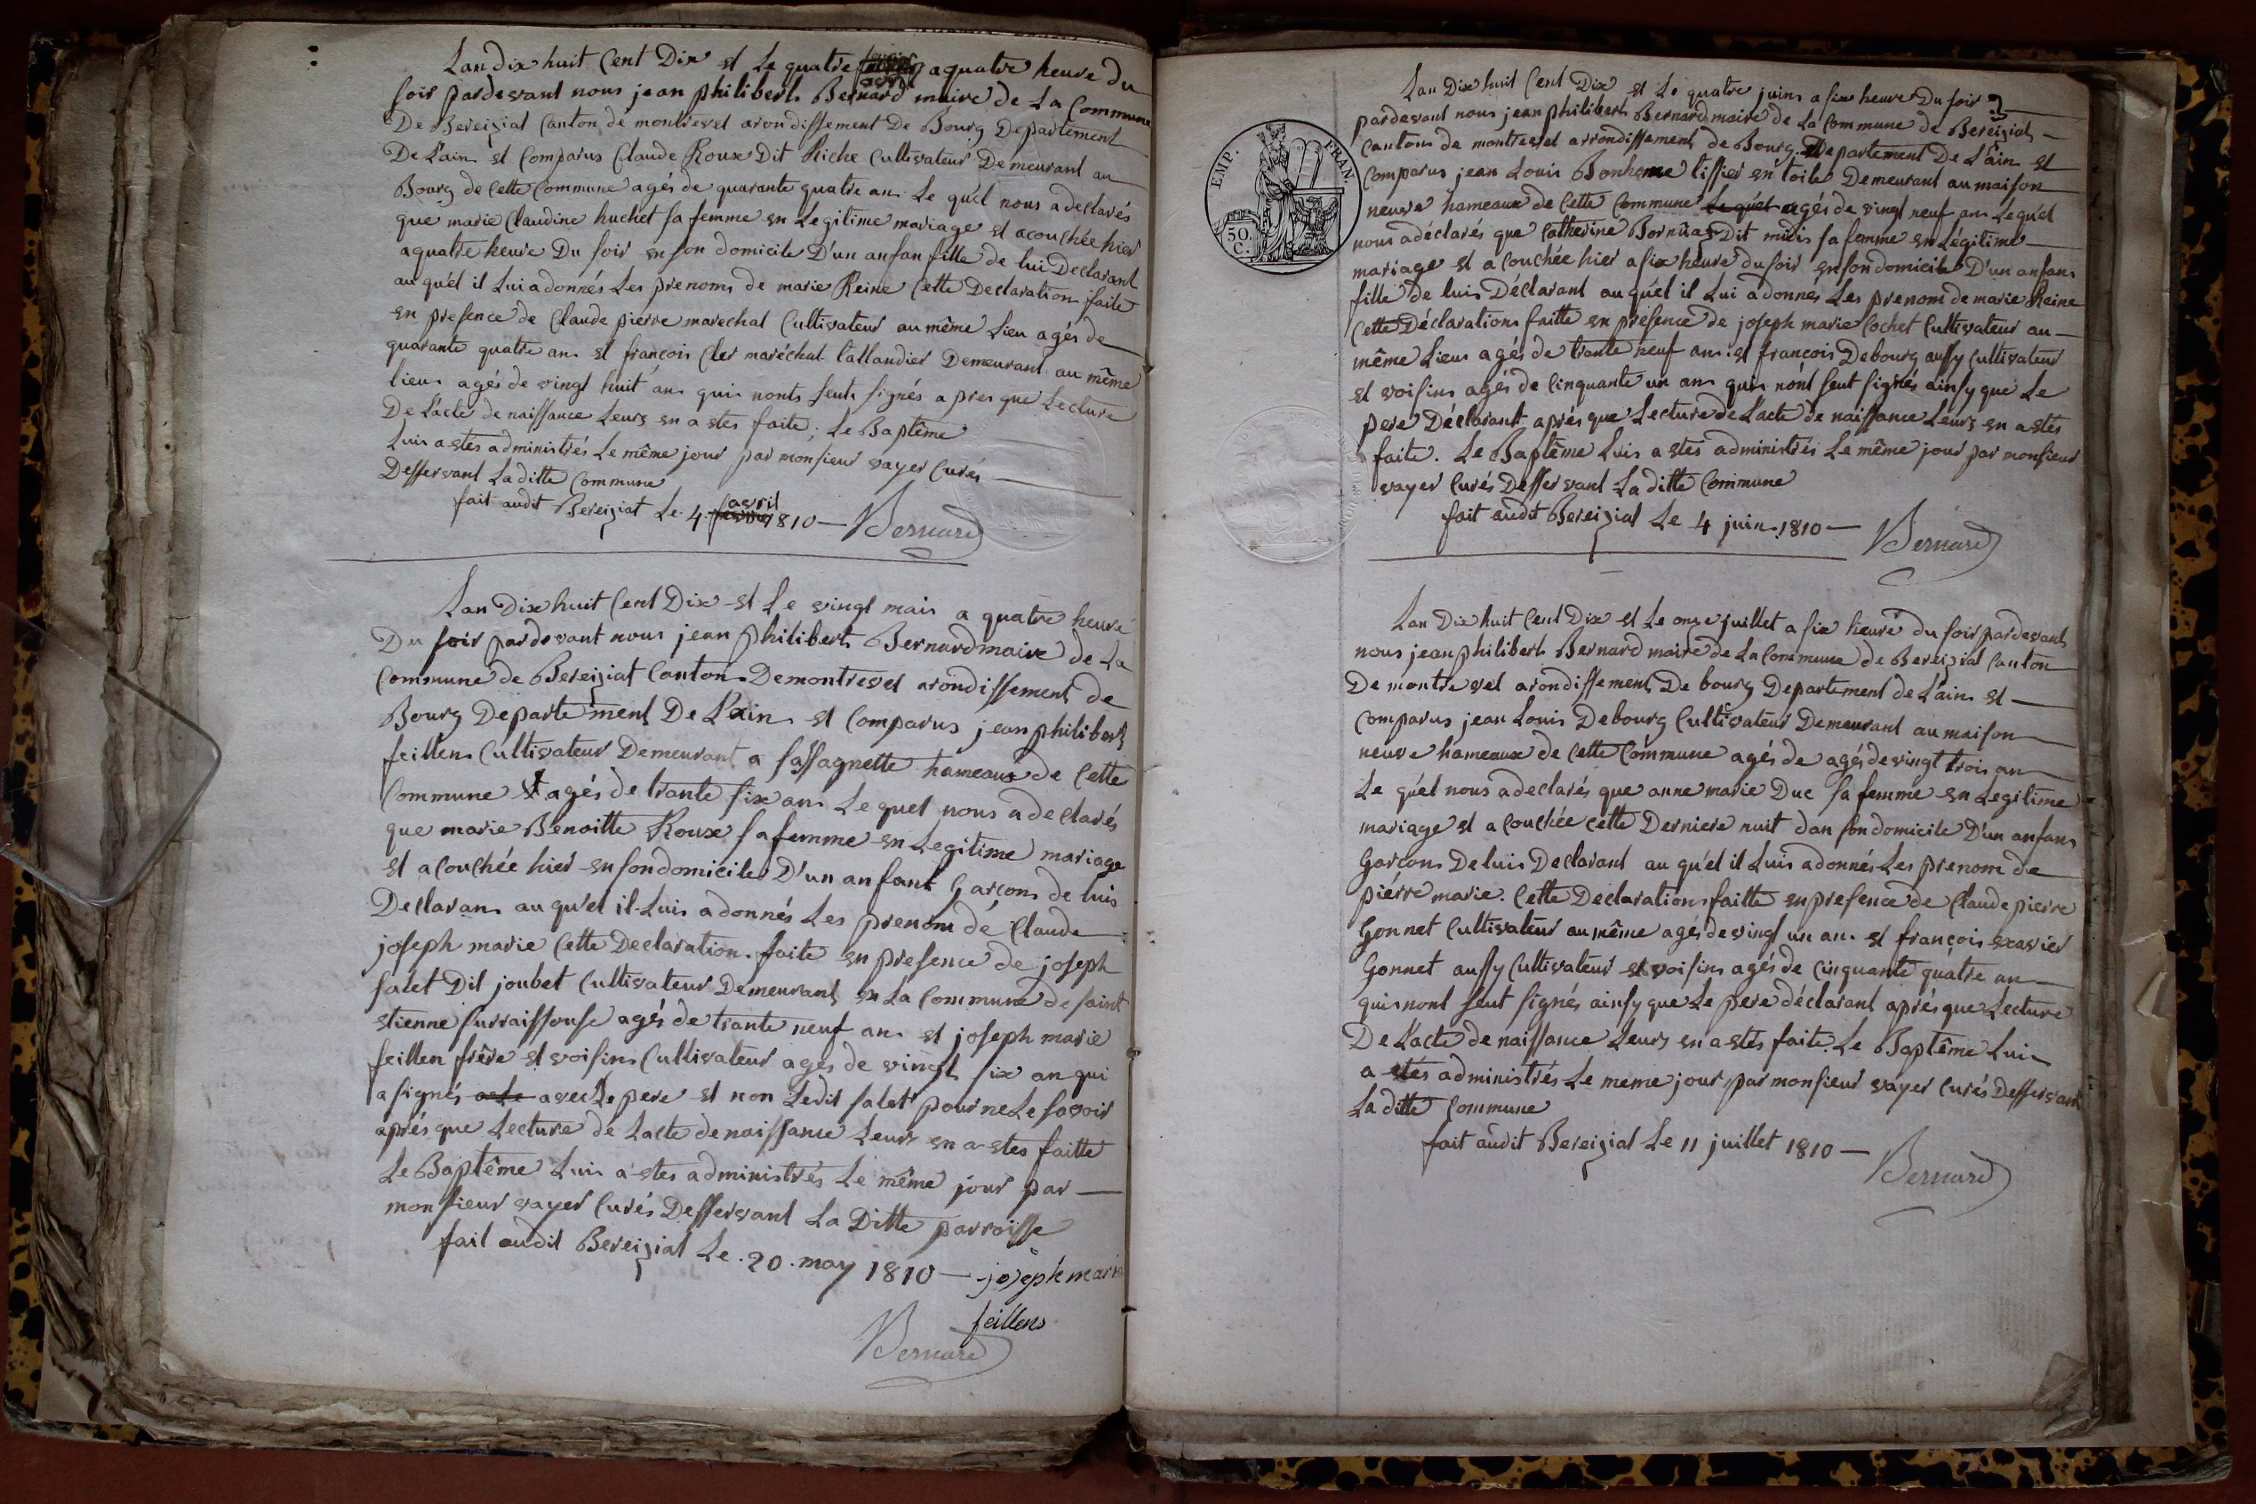 Lan dix huit Cent Dix et Le quatre avril a quatre heure du
soir pardevant nous jean philibert Bernard maire de La Commune
De Bereiziat Canton de montrevel arondissement De Bourg Departement
De L'ain et Comparus Claude Roux Dit Riche Cultivateur Demeurant au
Bourg de Cette Commune agés de quarante quatre an Le qu'el nous a declarés
que marie Claudine huchet sa femme en Legitime mariage et acouchée hier
a quatre heure Du soir en son domicile D'un anfan fille de lui Declarant
au qu'el il Lui a donnés Les prenoms de marie Reine Cette Declaration faite
en presence de Claude pierre marechal Cultivateur au même Lieu agés de
quarante quatre an et françois Cler maréchal tallandier Demeurant au même
lieu agés de vingt huit an qui nonts seuts signés a pres que Lecture
De L'acte de naissance Leurs en a etes faite; Le Baptême
Lui a etes administrés Le même jour par monsieur vayer Curés
Deffervant La ditte Commune
fait audit Bereiziat Le 4 avril 1810 — Bernard
Lan Dix huit Cent Dix et Le vingt mai a quatre heure
Du soir pardevant nous jean philibert Bernard maire de La
Commune de Bereiziat Canton Demontrevel arondissement de
Bourg Departement De L'ain et Comparus jean philibert
feillens Cultivateur Demeurant a Sassagnette hameaux de Cette
Commune agés de trante six an Le quel nous a declarés
que marie Benoitte Roux sa femme en Legitime mariage
et acouchée hier en son domicile D'un anfant Garçon de lui
Declaran au qu'el il Lui a donnés Les prenom de Claude
joseph marie Cette Declaration faite en presence de joseph
salet Dit joubet Cultivateur Demeurant en La Commune de saint
etienne surraissouse agés de trante neuf an et joseph marie
feillen frère et voisin Cultivateur agés de vingt six an qui
a signés avec Le pere et non Ledit salet pour ne Le savoir
aprés que Lecture de Lacte de naissance Leurs en a etes faitte
Le Baptême Lui a etes administrés Le même jour par
monsieur vayer Curés Deffervant La Ditte parroisse
fait audit Bereiziat Le 20 may 1810 — joseph marie
feillens
Bernard
EMP. FRAN.
50
C.
Lan Dix huit Cent Dix et Le quatre juin a six heure Du soir
pardevant nous jean philibert Bernard maire de La Commune de Bereiziat
Canton de montrevel arrondissement de Bourg Departement De L'ain et
Comparus jean Louis Bonheme tissier en toile Demeurant au maison
neuve hameaux de Cette Commune Le qu'el agés de vingt neuf an Le qu'el
nous a déclarés que Catherine Bornuaz Dit midis sa femme en Légitime
mariage et a Couchée hier a six heure du soir en son domicile D'un anfan
fille de lui Déclarant au qu'el il Lui a donnes Les prenom de marie Reine
Cette Déclaration faitte en présence de joseph marie Cochet Cultivateur au
même Lieu agés de trante neuf an et françois Debourg aussy Cultivateur
et voisin agés de Cinquante un an qui nónt seut signés ainsy que Le
pere Déclarant aprés que Lecture de L'acte de naissance Leurs en a etés
faite. Le Baptême Lui a etés administrés Le même jour par monsieur
vayer Curés Deffervant La ditte Commune
fait audit Bereiziat Le 4 juin 1810 — Bernard
Lan Dix huit Cent Dix et Le onze juillet a six heure du soir pardevant
nous jean philibert Bernard maire de La Commune de Bereiziat Canton
De montrevel arondissement De bourg Departement de L'ain et
Comparus jean Louis Debourg Cultivateur Demeurant au maison
neuve hameaux de Cette Commune agés de agés de vingt trois an
Le qu'el nous a declarés que anne marie Duc sa femme en Legitime
mariage et a couchée cette Derniere nuit dan son domicile D'un anfan
Garçon De lui Declarant au qu'el il Lui a donnés Les prenom de
piérre marie. Cette Declaration faitte en presence de Claude pierre
Gonnet Cultivateur au même agés de vingt un an et françois exavier
Gonnet aussy Cultivateur et voisin agés de Cinquante quátre an
qui nont seut signés ainsy que Le pere déclarant aprés que Lecture
De L'acte de naissance Leurs en a etés faite. Le Baptême Lui
a etés administrés Le meme jour par monsieur vayer Curés Deffervant
La ditte Commune
fait audit Bereiziat Le 11 juillet 1810 —
Bernard